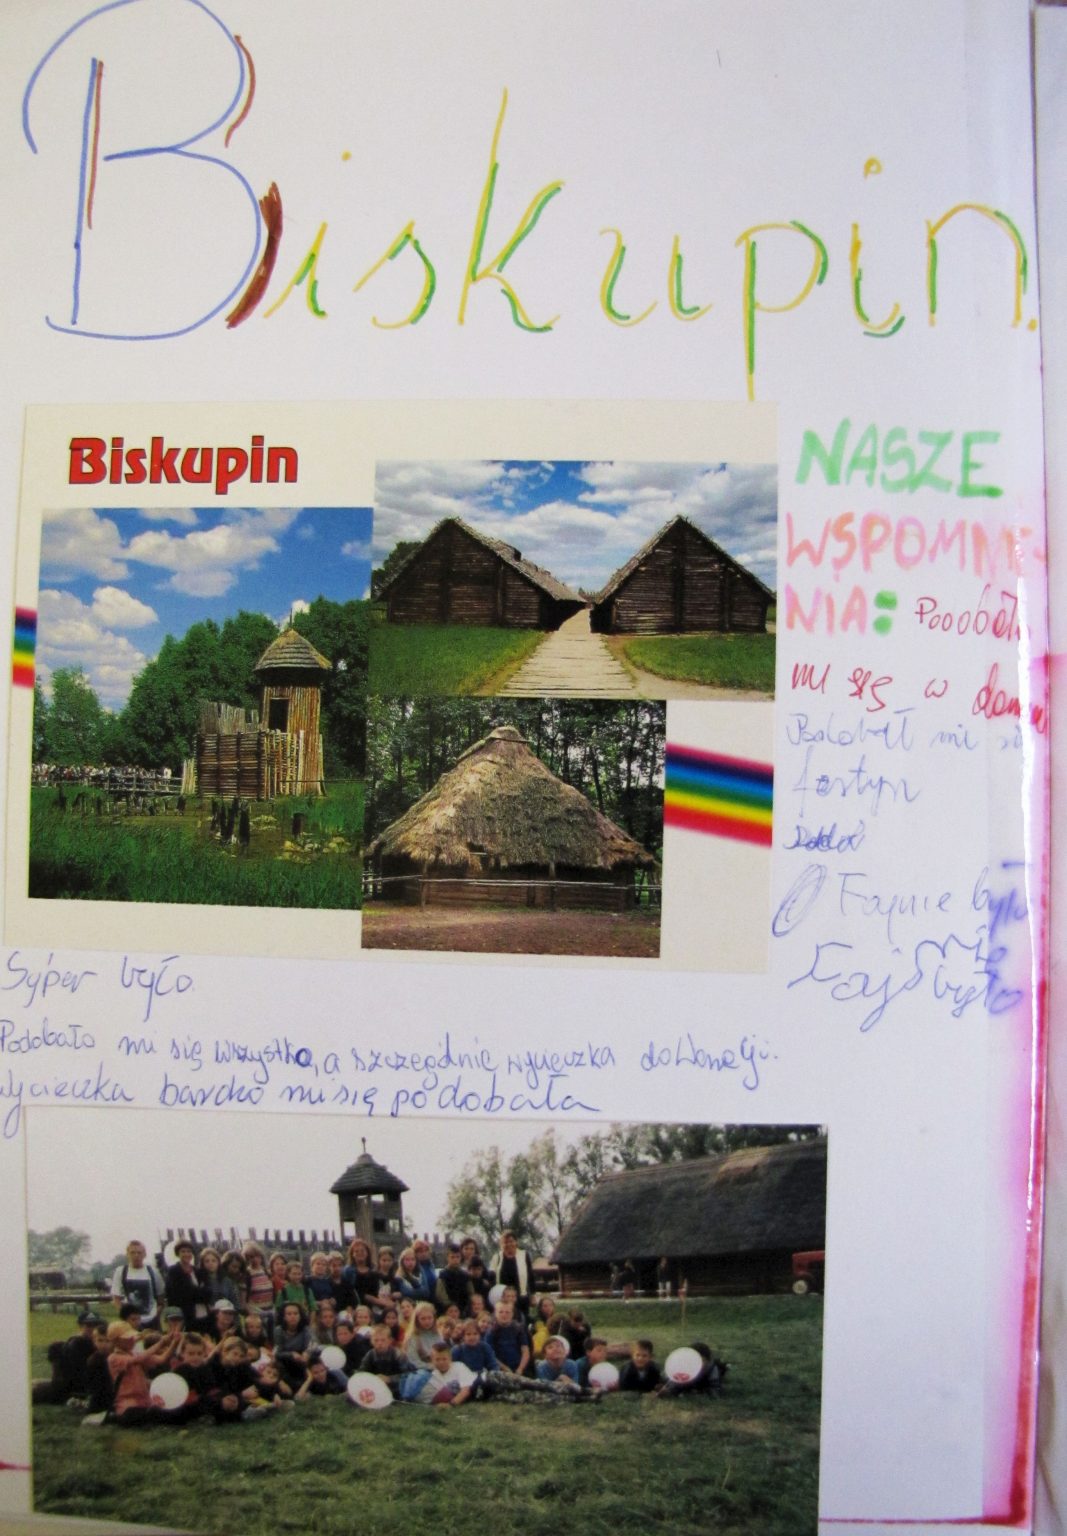 Biskupin.
Biskupin
NASZE
WSPOMNIE-
NIA: Podobał
mi się w
Podobał mi się
festyn
Fajnie było
Fajnie
było
Syper było
Podobało mi się wszystko, a szczegędnie wycieczka do Wenecji.
Wycieczka bardzo mi się podobała